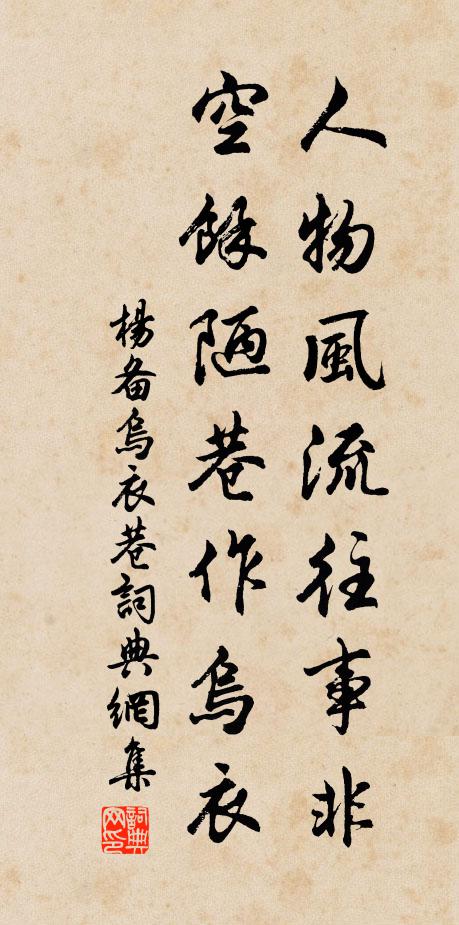 人物風流往事非
空餘陋巷作烏衣
楊备烏衣巷詞典網集
詞典網印